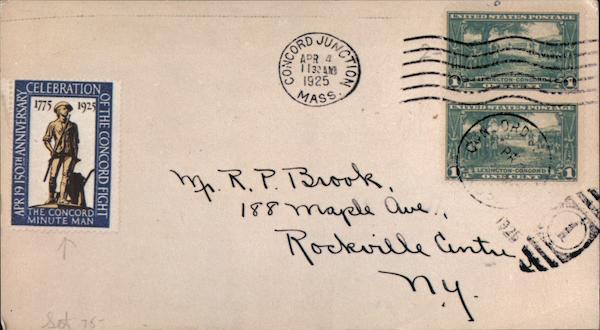 UNITED STATES POSTAGE
1 LEXINGTON-CONCORD 1
ONE CENT
UNITED STATES POSTAGE
1 LEXINGTON-CONCORD 1
ONE CENT
CONCORD JUNCTION
APR 4
11 30 AM
1925
MASS.
CONCORD
1925
APR 19 150TH ANNIVERSARY CELEBRATION OF THE CONCORD FIGHT
1775 1925
THE CONCORD
MINUTE MAN
Mr. R. P. Brook,
188 Maple Ave.,
Rockville Centre
N.Y.
Set 75-